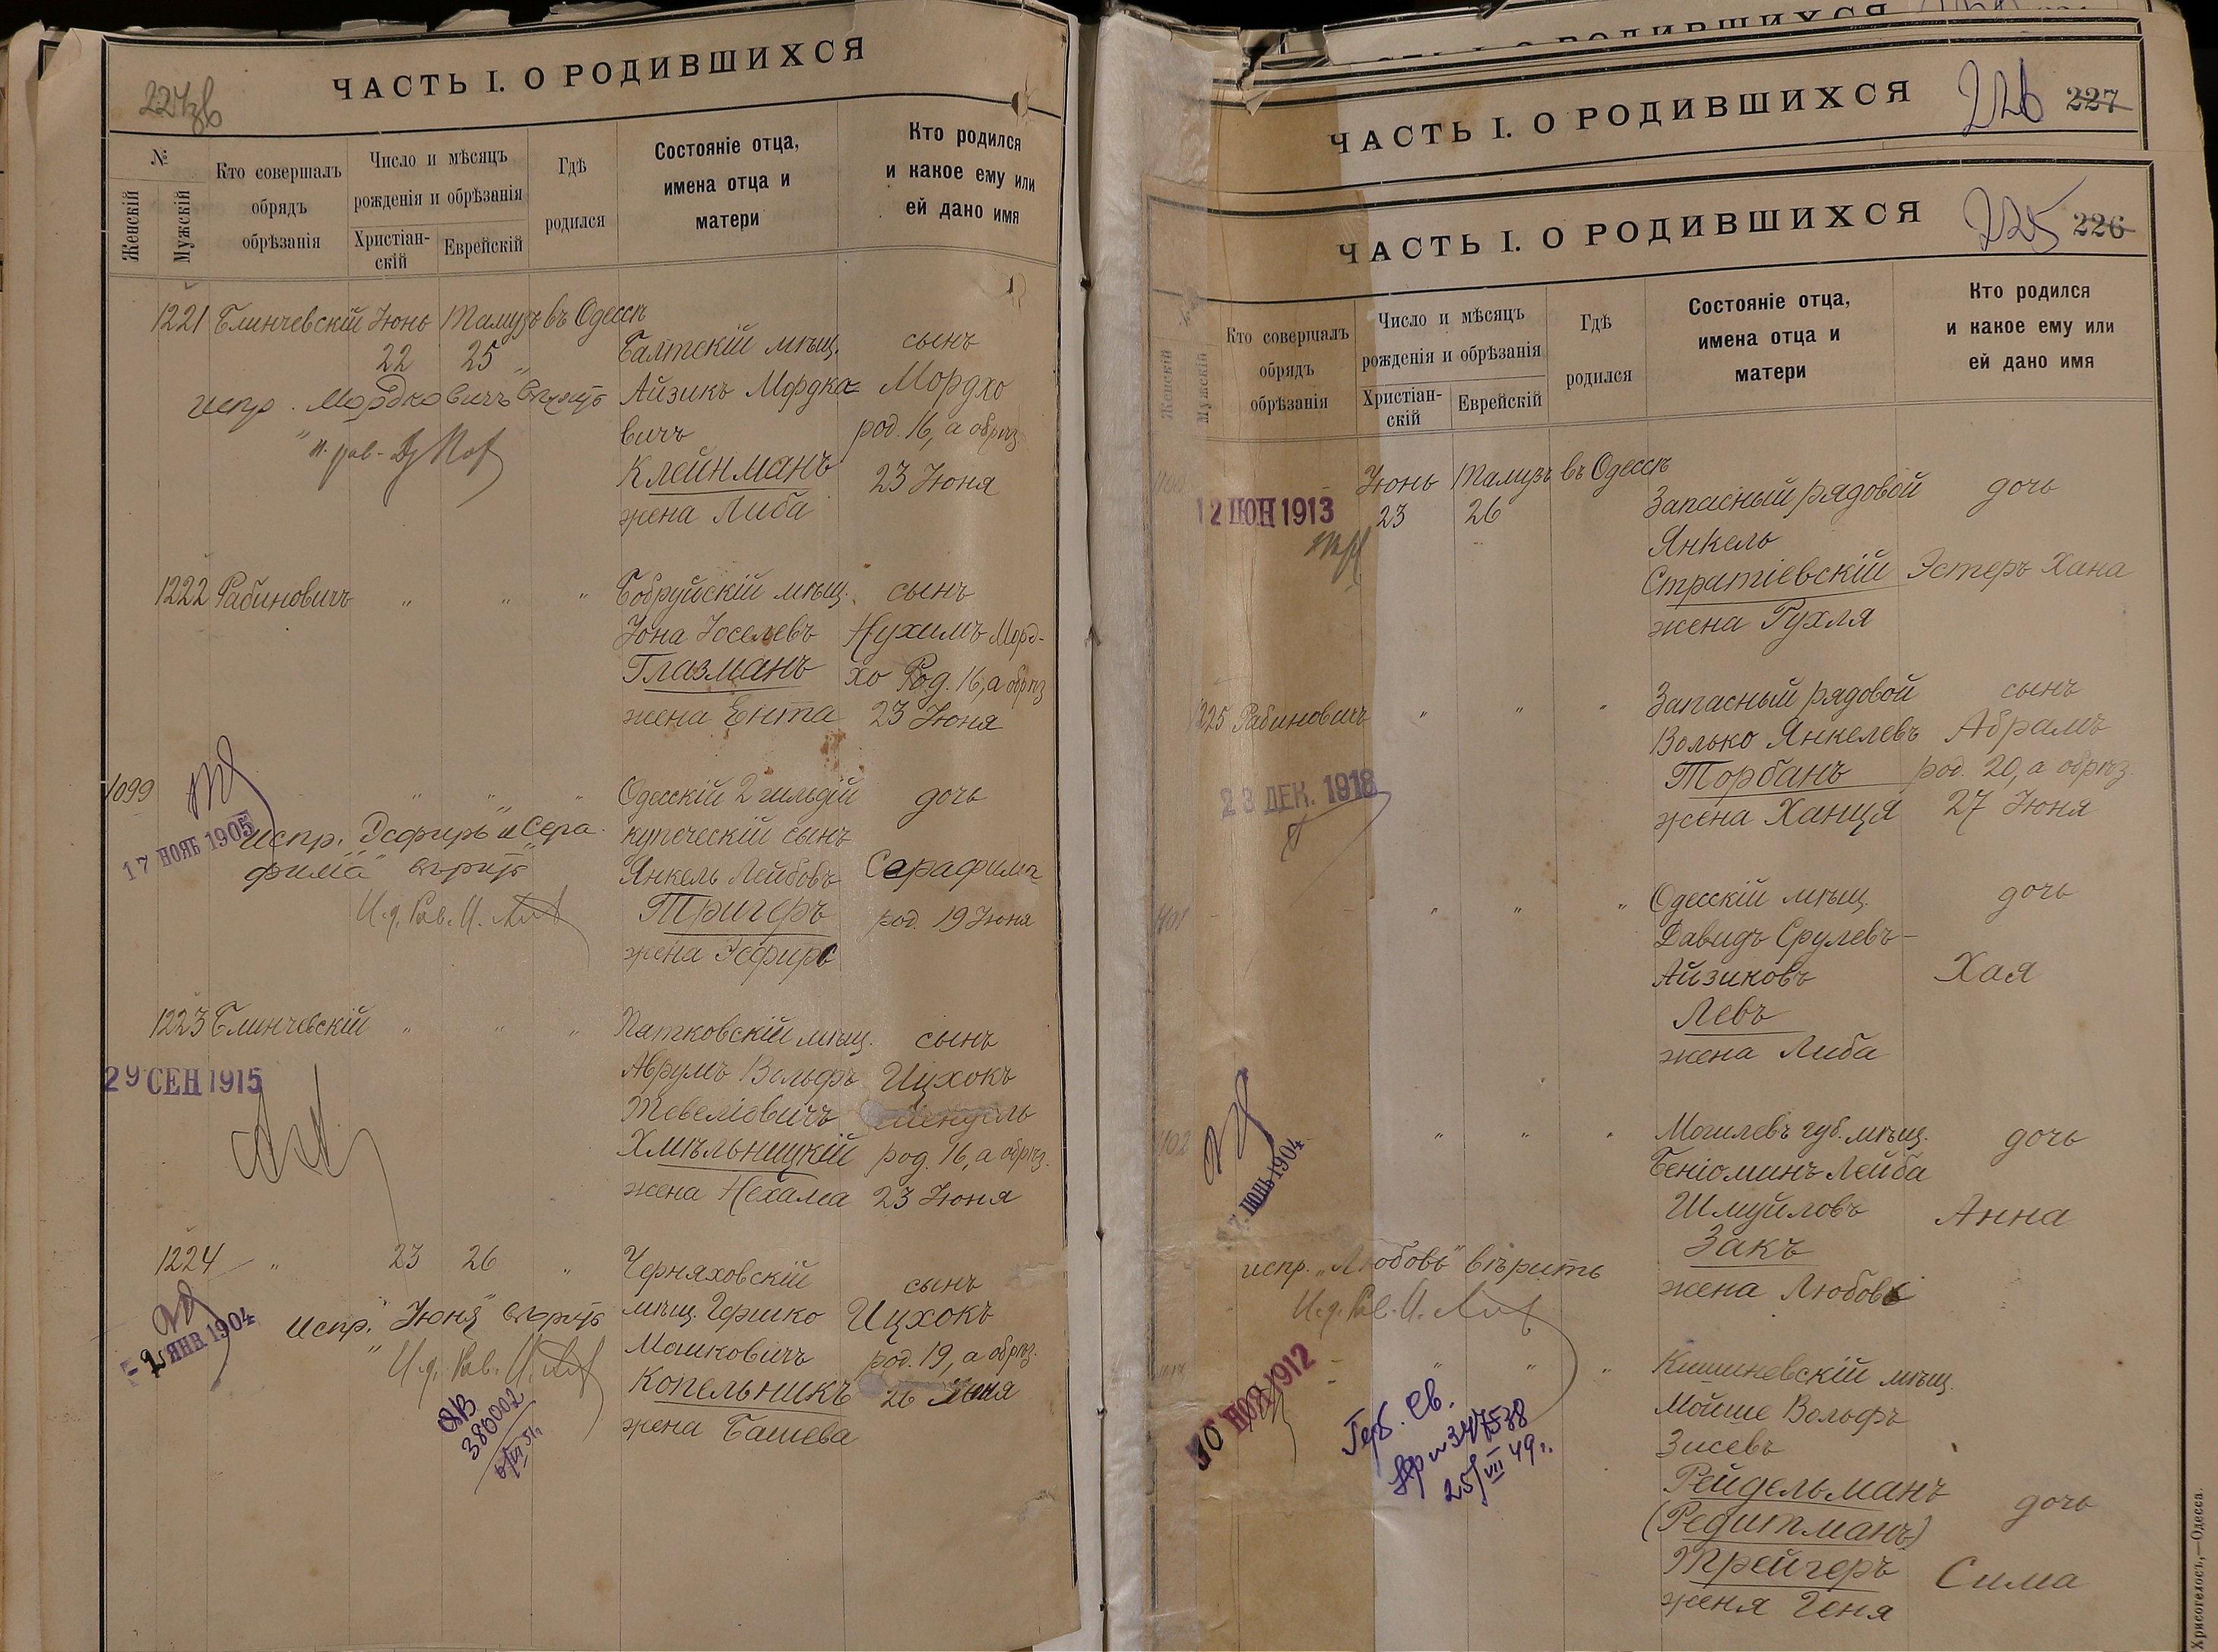 227об
ЧАСТЬ I. О РОДИВШИХСЯ
№
Женскій
Мужскій
Кто совершалъ
обрядъ
обрѣзанія
Число и мѣсяцъ
рожденія и обрѣзанія
Христіан-
скій
Еврейскій
Гдѣ
родился
Состояніе отца,
имена отца и
матери
Кто родился
и какое ему или
ей дано имя
1221 Блинчевскій Іюнь Тамузъ въ Одессѣ
22 25
Балтскій мѣщ.
Айзикъ Мордко-
вичъ
Клейнманъ
жена Либа
сынъ
Мордхо
род. 16, а обрѣз.
23 Іюня
испр. Мордковичъ вѣрить
1222 Рабиновичъ " " "
Бобруйскій мѣщ.
Іона Іоселевъ
Глазманъ
жена Ента
сынъ
Нухимъ Морд-
хо Род. 16, а обрѣз
23 Іюня
1099 " " "
Одесскій 2 гильдіи
купеческій сынъ
Янкель Лейбовъ
Тригеръ
жена Эсфирь
дочь
Серафима
род. 19 Іюня
17 НОЯБ 1905
испр. "Эсфирь" и "Сера-
фима" вѣрить
И. д. Рав. И.
1223 Блинчевскій " " "
Патковскій мѣщ.
Аврумъ Вольфъ
Тевеліовичъ
Хмѣльницкій
жена Нехама
сынъ
Ицхокъ
род. 16, а обрѣз.
23 Іюня
29 СЕН 1915
1224 " 23 26 "
Черняховскій
мѣщ. Гершко
Машковичъ
Копельникъ
жена Башева
сынъ
Ицхокъ
род. 19, а обрѣз.
26 Іюня
2 ЯНВ 1904
испр. "Іюня" вѣрить
И. д. Рав. И.
ЯВ
386002
ЧАСТЬ I. О РОДИВШИХСЯ
226 227
ЧАСТЬ I. О РОДИВШИХСЯ
225 226
Женскій
Мужскій
Кто совершалъ
обрядъ
обрѣзанія
Число и мѣсяцъ
рожденія и обрѣзанія
Христіан-
скій
Еврейскій
Гдѣ
родился
Состояніе отца,
имена отца и
матери
Кто родился
и какое ему или
ей дано имя
Іюнь Тамузъ въ Одессѣ
23 26
12 ІЮН 1913
Запасный рядовой
Янкель
Стратіевскій
жена Рухля
дочь
Эстеръ Хана
1225 Рабиновичъ " " "
Запасный рядовой
Волько Янкелевъ
Торбанъ
жена Ханця
сынъ
Абрамъ
род. 20, а обрѣз.
27 Іюня
23 ДЕК. 1918
1101 " " "
Одесскій мѣщ.
Давидъ Срулевъ-
Айзиковъ
Левъ
жена Либа
дочь
Хая
1102 " " "
Могилевъ губ. мѣщ.
Беніоминъ Лейба
Шмуйловъ
Закъ
жена Любовь
дочь
Анна
7. ІЮНЬ 1904
испр. "Любовь" вѣрить
И. д. Рав. И.
" " "
Кишиневскій мѣщ.
Мойше Вольфъ
Зисевъ
Рейдельманъ
(Редитманъ)
Трейгеръ
жена Геня
дочь
Сима
10 НОЯ 1912
Герб. св.
№ 347538
25/VII 49 г.
Хрисогелосъ,—Одесса.